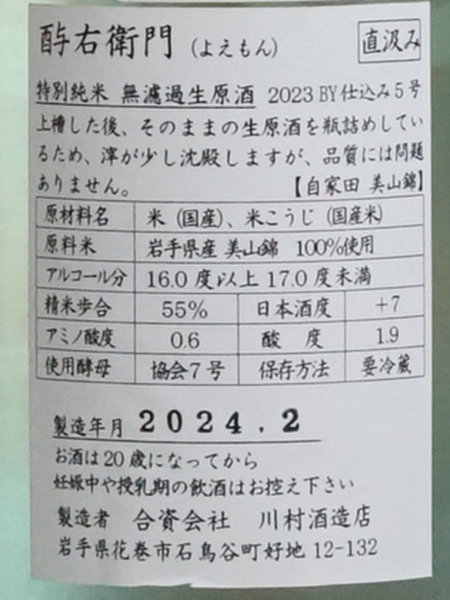 酉与右衛門 (よえもん) 直汲み
特別純米 無濾過生原酒 2023BY仕込み5号
上槽した後、そのままの生原酒を瓶詰めしてい
るため、滓が少し沈殿しますが、品質には問題
ありません。 【自家田 美山錦】
原材料名 米(国産)、米こうじ(国産米)
原料米 岩手県産 美山錦 100%使用
アルコール分 16.0度以上17.0度未満
精米歩合 55% 日本酒度 +7
アミノ酸度 0.6 酸度 1.9
使用酵母 協会7号 保存方法 要冷蔵
製造年月 2024.2
お酒は20歳になってから
妊娠中や授乳期の飲酒はお控え下さい
製造者 合資会社 川村酒造店
岩手県花巻市石鳥谷町好地12-132